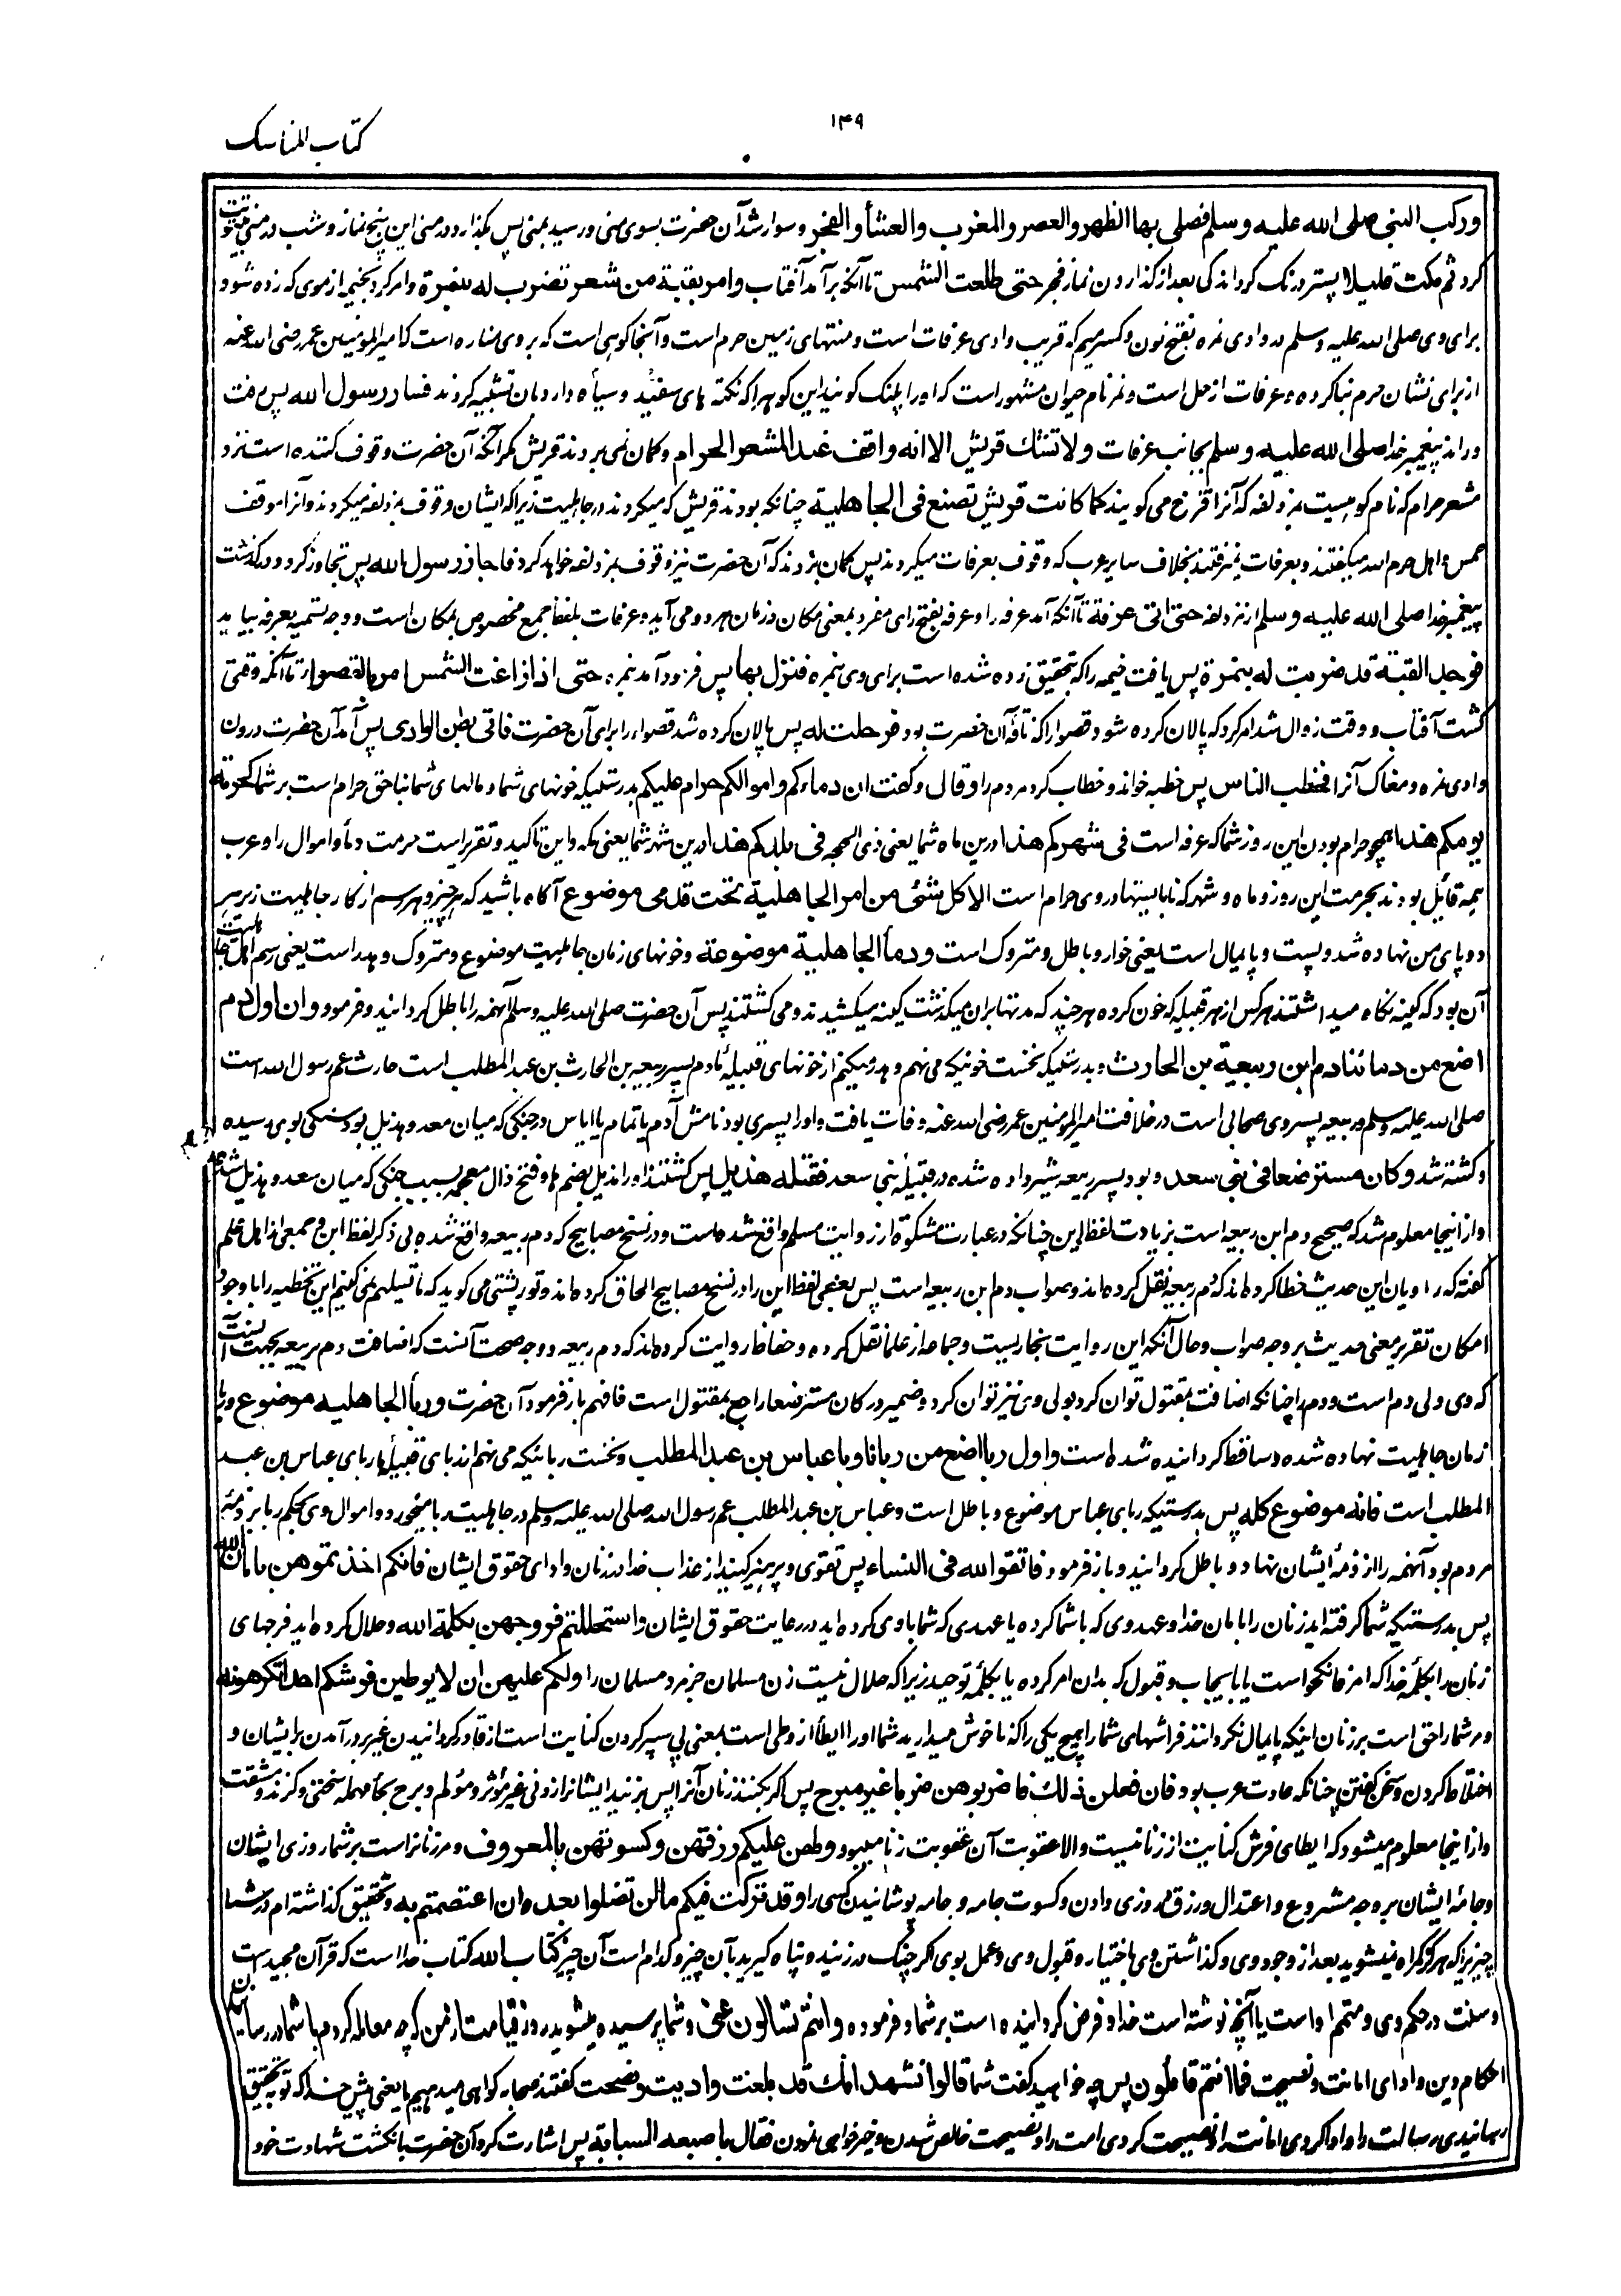 ۱۴۹
کتاب المناسک
ورکب النبی صلی الله علیه وسلم فصلی بها الظهر والعصر والمغرب والعشاء والفجر و سوار شد آن حضرت بسوی منی و رسید بمنی پس بگذارد در منی این پنج نماز و شب در منی بیتوتت
کرد ثم مکث قلیلا پستر درنگ کرد اندکی بعد از گذاردن نماز فجر حتی طلعت الشمس تا آنکه برآمد آفتاب وامر بقبة من شعر تضرب له بنمرة و امر کرد بخیمه از موی که زده شود
برای وی صلی الله علیه وسلم در وادی نمره بفتح نون و کسر میم که قریب وادی عرفات است و منتهای زمین حرم است و آنجا کوهی است که بروی مناره است که امیرالمومنین عمر رضی الله عنه
از برای نشان حرم بنا کرده و عرفات از حل است و نمر نام حیوان مشهور است که او را پلنگ گویند این کوه را که نکته های سفید و سیاه دارد بآن تشبیه کردند فسار رسول الله پس رفت
و راند پیغمبر خدا صلی الله علیه وسلم بجانب عرفات ولا تشك قریش الا انه واقف عند المشعر الحرام و گمان نمی بردند قریش مگر آنکه آن حضرت وقوف کننده است نزد
مشعر حرام که نام کوهیست بمزدلفه که آنرا قزح می گویند کما کانت قریش تصنع فی الجاهلیة چنانکه بودند قریش که میکردند در جاهلیت زیرا که ایشان وقوف بمزدلفه میکردند و آنرا موقف
حمس و اهل حرم الله میگفتند و بعرفات نمیرفتند بخلاف سایر عرب که وقوف بعرفات میکردند پس گمان بردند که آن حضرت نیز وقوف بمزدلفه خواهد کرد فاجاز رسول الله پس تجاوز کرد و درگذشت
پیغمبر خدا صلی الله علیه وسلم از مزدلفه حتی اتی عرفة تا آنکه آمد عرفه را و عرفه بفتح رای مفرد بمعنی مکان و زمان هر دو می آید و عرفات بلفظ جمع مخصوص بمکان است و وجه تسمیه بعرفه بیاید
فوجد القبة قد ضربت له بنمرة پس یافت خیمه را که بتحقیق زده شده است برای وی بنمره فنزل بها پس فرود آمد بنمره حتی اذا زاغت الشمس امر بالقصواء تا آنکه وقتی
گشت آفتاب و وقت زوال شد امر کرد که پالان کرده شود قصوا را که ناقۀ آن حضرت بود فرحلت له پس پالان کرده شد قصواء را برای آن حضرت فاتی بطن الوادی پس آمد آن حضرت درون
وادی نمره و مغاک آنرا فخطب الناس پس خطبه خواند و خطاب کرد مردم را وقال و گفت ان دماءکم واموالکم حرام علیکم بدرستیکه خونهای شما و مالهای شما بناحق حرام است بر شما کحرمة
یومکم هذا همچو حرام بودن این روز شما که عرفه است فی شهرکم هذا در این ماه شما یعنی ذی الحجه فی بلدکم هذا در این شهر شما یعنی مکه و این تاکید و تقریر است حرمت دما و اموال را و عرب
همه قایل بودند بحرمت این روز و ماه و شهر که نابایستها در وی حرام است الا کل شئی من امر الجاهلیة تحت قدمی موضوع آگاه باشید که هر چیز و هر رسم از کار جاهلیت زیر هر
دو پای من نهاده شد و پست و پایمال است یعنی خوار و باطل و متروک است ودماء الجاهلیة موضوعة و خونهای زمان جاهلیت موضوع و متروک و هدر است یعنی رسم اهل جاهلیت
آن بود که کینه نگاه میداشتند هر کس از هر قبیله که خون کرده هر چند که مدتها بران میگذشت کینه میکشیدند و می کشتند پس آن حضرت صلی الله علیه وسلم آنهمه را باطل گردانید و فرمود وان اول دم
اضع من دمائنا دم ابن ربیعة بن الحارث و بدرستیکه نخست خونیکه می نهم و هدر میکنم از خونهای قبیلۀ ما دم پسر ربیعه بن الحارث بن عبد المطلب است حارث عم رسول الله است
صلی الله علیه وسلم و ربیعه پسر وی صحابی است در خلافت امیرالمومنین عمر رضی الله عنه وفات یافت و او را پسری بود نامش آدم یا تمام یا ایاس در جنگی که میان سعد و هذیل بود سنگی بوی رسیده
و کشته شد وکان مسترضعا فی بنی سعد و بود پسر ربیعه شیر داده شده در قبیلۀ بنی سعد فقتله هذیل پس کشتند او را هذیل بضم ها و فتح ذال معجمه بسبب جنگی که میان سعد و هذیل شده
و از اینجا معلوم شد که صحیح دم ابن ربیعه است بزیادت لفظ ابن چنانکه در عبارت مشکوة از روایت مسلم واقع شده است و در نسخ مصابیح که دم ربیعه واقع شده بی ذکر لفظ ابن جمعی از اهل علم
گفته که راویان این حدیث خطا کرده اند که دم ربیعه نقل کرده اند و صواب دم بن ربیعه است پس بعضی لفظ ابن را در نسخ مصابیح الحاق کرده اند و تورپشتی می گوید که ما تسلیم نمی کنیم این تخطیه را با وجود
امکان تقریر معنی حدیث بر وجه صواب و حال آنکه این روایت بخاریست و جماعه از علما نقل کرده و حفاظ روایت کرده اند که دم ربیعه و وجه صحت آنست که اضافت دم بربیعه بجهت آنست
که وی ولی دم است و دم را چنانکه اضافت بمقتول توان کرد بولی وی نیز توان کرد و ضمیر در کان مسترضعا راجع بمقتول است فافهم باز فرمود آن حضرت وربا الجاهلیه موضوع و ربا
زمان جاهلیت نهاده شده و ساقط گردانیده شده است واول ربا اضع من ربانا ربا عباس بن عبد المطلب و نخست ربائیکه می نهم از ربای قبیلۀ ما ربای عباس بن عبد
المطلب است فانه موضوع کله پس بدرستیکه ربای عباس موضوع و باطل است و عباس بن عبد المطلب عم رسول الله صلی الله علیه وسلم در جاهلیت ربا میخورد و اموال وی بحکم ربا بر ذمۀ
مردم بود آنهمه را از ذمۀ ایشان نهاد و باطل گردانید و باز فرمود فاتقوا الله فی النساء پس تقوی و پرهیز کنید از عذاب خدا در زنان و ادای حقوق ایشان فانکم اخذتموهن بامان الله
پس بدرستیکه شما گرفته اید زنان را بامان خدا و عهد وی که با شما کرده یا عهدی که شما با وی کرده اید در رعایت حقوق ایشان واستحللتم فروجهن بکلمة الله و حلال کرده اید فرجهای
زنان را بکلمۀ خدا که امر فانکحوا است یا بایجاب و قبول که بدان امر کرده یا بکلمۀ توحید زیرا که حلال نیست زن مسلمان جز مرد مسلمان را ولکم علیهن ان لا یوطین فرشکم احدا تکرهونه
و مر شما را حق است بر زنان اینکه پایمال نگردانند فراشهای شما را هیچ یکی را که ناخوش میدارید شما او را ایطا از وطی است بمعنی پی سپر کردن کنایت است از قادر گردانیدن غیر بر در آمدن بر ایشان و
اختلاط کردن و سخن گفتن چنانکه عادت عرب بود فان فعلن ذلك فاضربوهن ضربا غیر مبرح پس اگر بکنند زنان آنرا پس بزنید ایشانرا زدنی غیر مؤثر و مؤلم و برح بحاء مهمله سختی و گزند و مشقت
و از اینجا معلوم میشود که ایطای فرش کنایت از زنا نیست والا عقوبت آن عقوبت زنا میبود ولهن علیکم رزقهن وکسوتهن بالمعروف و مر زنانراست بر شما روزی ایشان
و جامۀ ایشان بر وجه مشروع و اعتدال و رزق روزی دادن و کسوت جامه و جامه پوشانیدن کسی را وقد ترکت فیکم مالن تضلوا بعده ان اعتصمتم به و بتحقیق گذاشته ام در شما
چیزیرا که هرگز گمراه نمیشوید بعد از وجود وی و گذاشتن وی باختیار و قبول وی و عمل بوی اگر چنگ در زنید و پناه گیرید بآن چیز و کدام است آن چیز کتاب الله کتاب خدا است که قرآن مجید است
و سنت در حکم وی و متمم او است یا آنچه نوشته است خدا و فرض گردانیده است بر شما و فرموده وانتم تسالون عنی و شما پرسیده میشوید روز قیامت از من که چه معامله کردم با شما در رسانیدن
احکام دین و ادای امانت و نصیحت فما انتم قائلون پس چه خواهید گفت شما قالوا نشهد انك قد بلغت وادیت ونصحت گفتند صحابه گواهی میدهیم ما یعنی پیش خدا که تو بتحقیق
رسانیدی رسالت را و ادا کردی امانت را و نصیحت کردی امت را و نصیحت خالص شدن و خیرخواهی نمودن فقال باصبعه السبابة پس اشارت کرد آن حضرت بانگشت شهادت خود